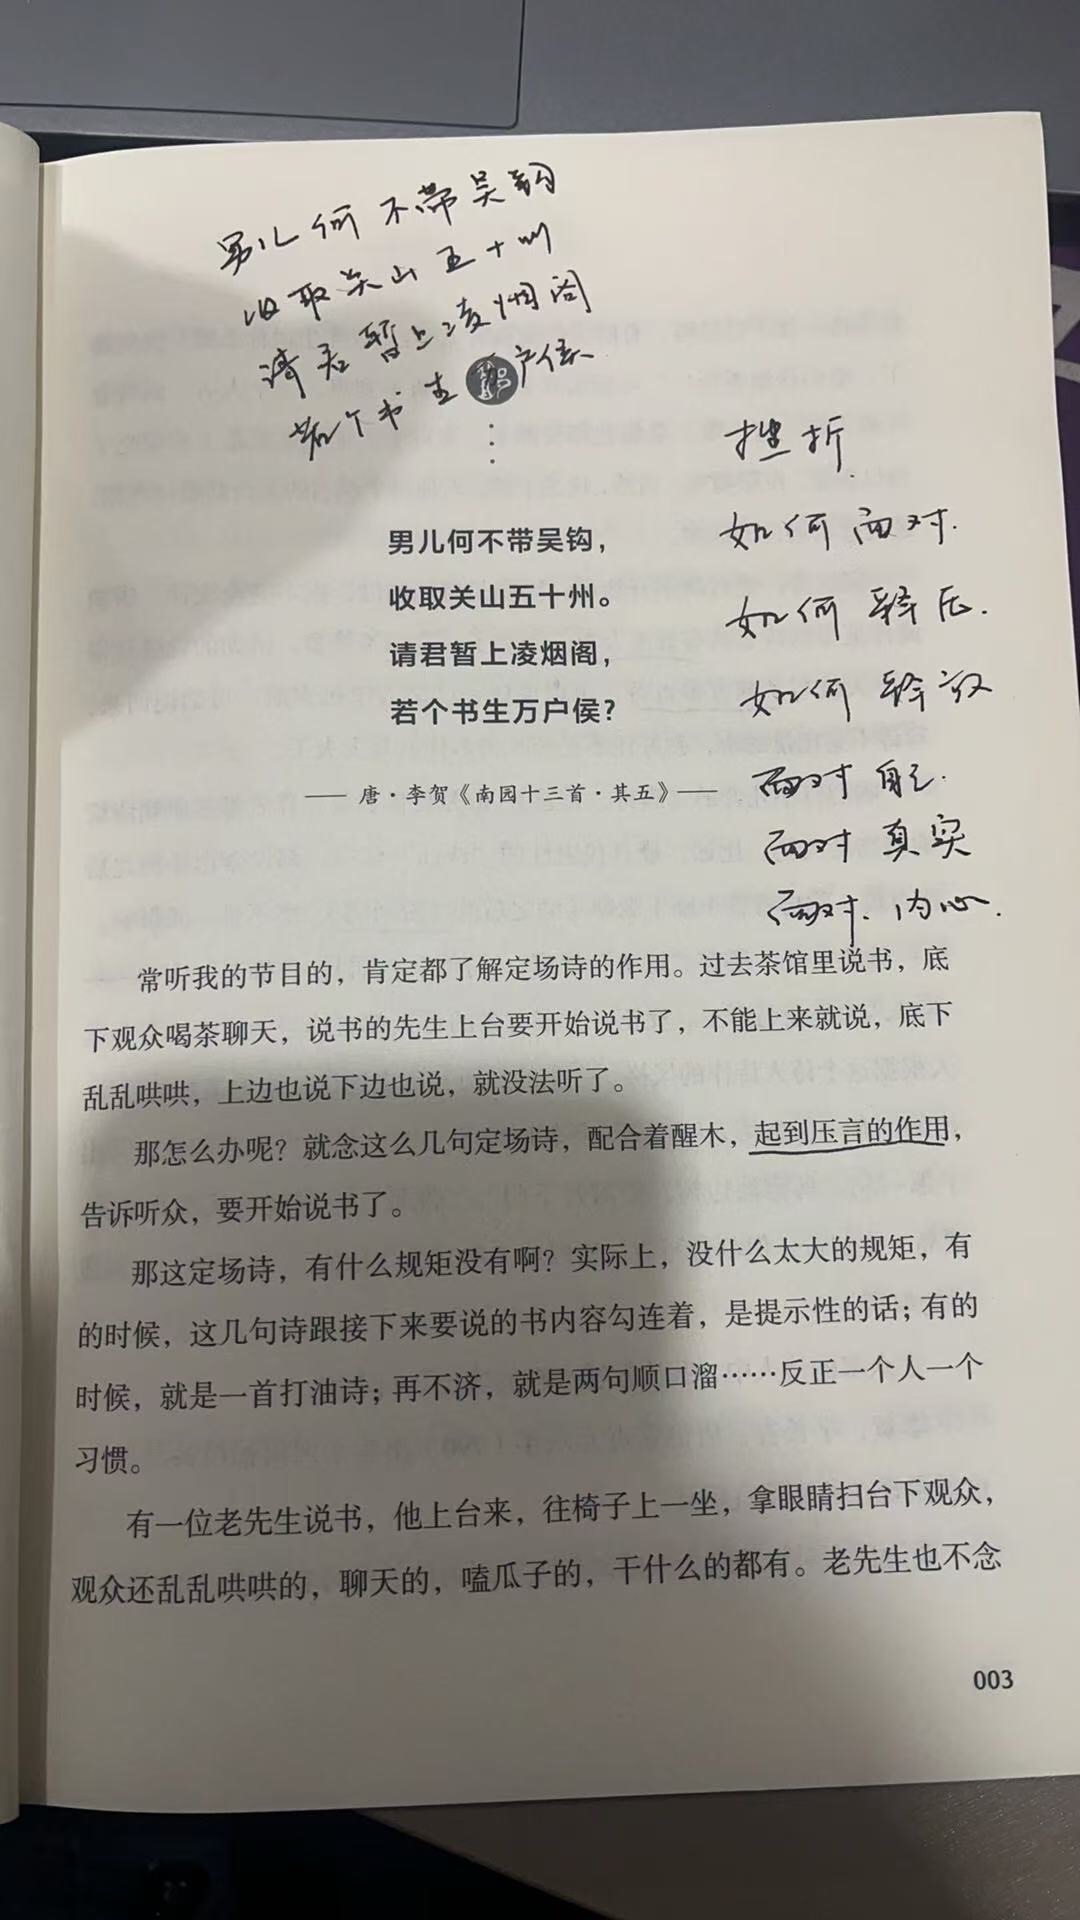 男儿何不带吴钩
收取关山五十州
请君暂上凌烟阁
若个书生万户侯
挫折
如何面对.
如何
如何释放
面对自己.
面对真实
面对.内心.
男儿何不带吴钩，
收取关山五十州。
请君暂上凌烟阁，
若个书生万户侯？
—— 唐·李贺《南园十三首·其五》——
常听我的节目的，肯定都了解定场诗的作用。过去茶馆里说书，底
下观众喝茶聊天，说书的先生上台要开始说书了，不能上来就说，底下
乱乱哄哄，上边也说下边也说，就没法听了。
那怎么办呢？就念这么几句定场诗，配合着醒木，起到压言的作用，
告诉听众，要开始说书了。
那这定场诗，有什么规矩没有啊？实际上，没什么太大的规矩，有
的时候，这几句诗跟接下来要说的书内容勾连着，是提示性的话；有的
时候，就是一首打油诗；再不济，就是两句顺口溜……反正一个人一个
习惯。
有一位老先生说书，他上台来，往椅子上一坐，拿眼睛扫台下观众，
观众还乱乱哄哄的，聊天的，嗑瓜子的，干什么的都有。老先生也不念
003